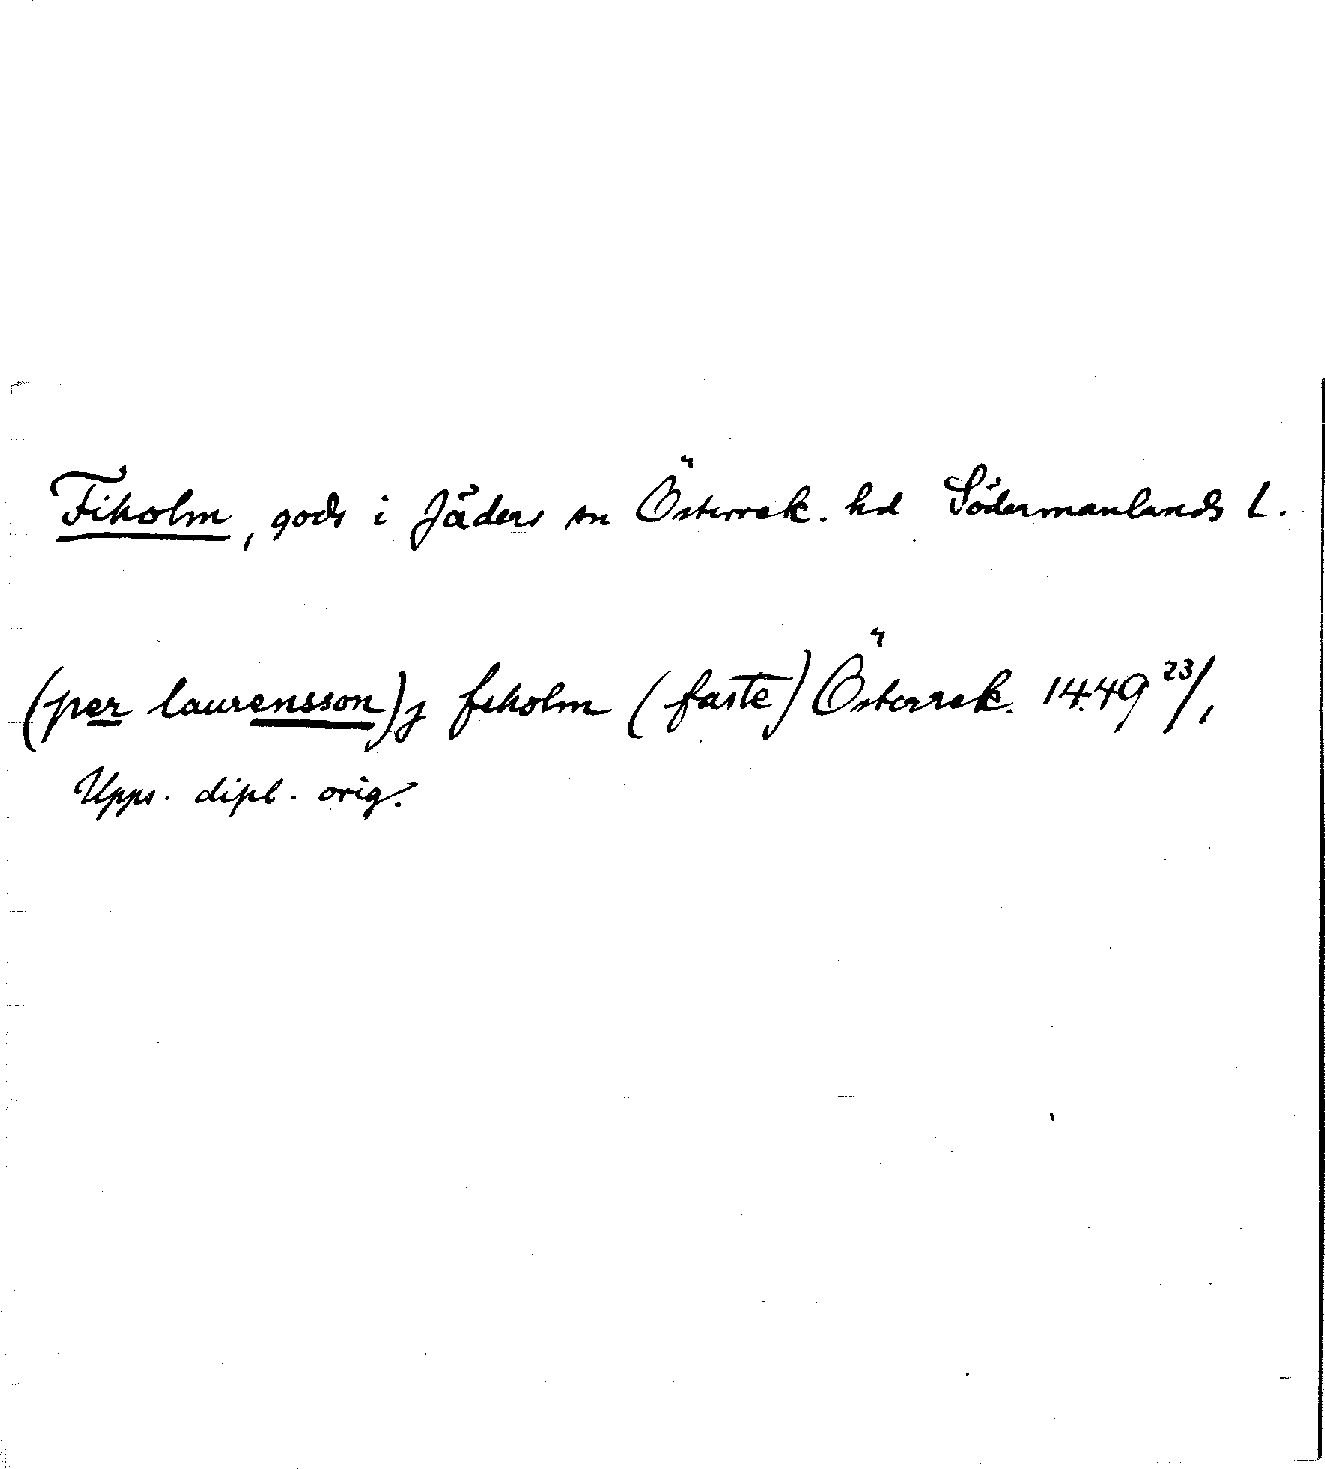 Fiholm, gods i Jäders sn Österrek. hd Södermanlands l.
(per laurensson) j feholm (faste) Österrek. 1449 23/1
Upps. dipl. orig.